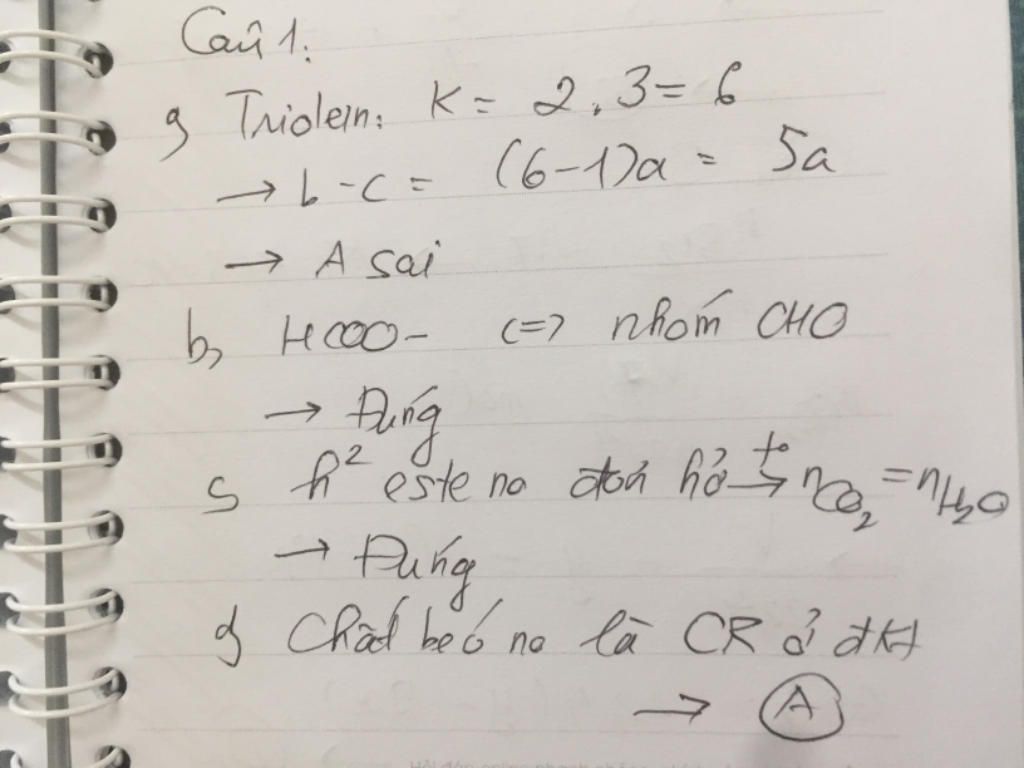 Câu 1:
a, Triolein: K = 2.3 = 6
→ b - c = (6-1)a = 5a
→ A sai
b, HCOO- <=> nhóm CHO
→ Đúng
c, h² este no đơn hở →t° nCO₂ = nH₂O
→ Đúng
d, Chất béo no là CR ở đkt
→ A